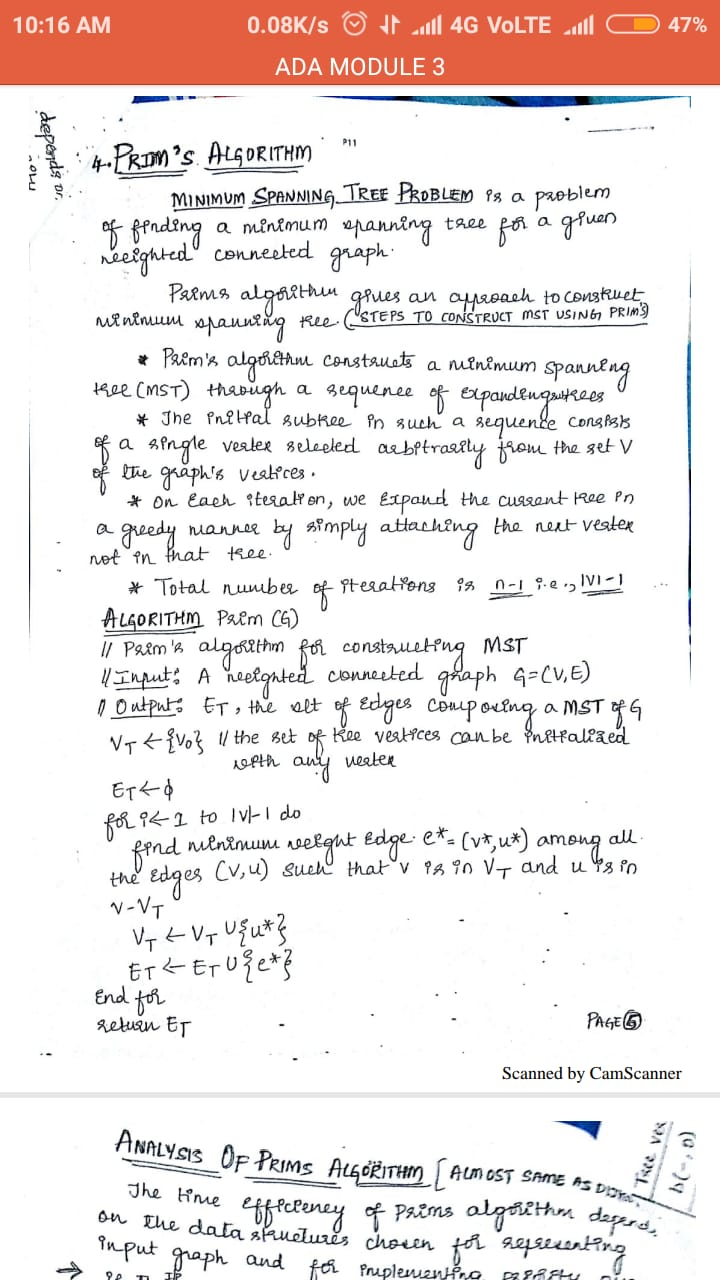 10:16 AM 0.08K/s 4G VoLTE 47%
ADA MODULE 3
depends on
4. PRIM'S ALGORITHM P11
MINIMUM SPANNING TREE PROBLEM is a problem
of finding a minimum spanning tree for a given
weighted connected graph.
Prims algorithm gives an approach to construct
minimum spanning tree. (STEPS TO CONSTRUCT MST USING PRIM'S)
* Prim's algorithm constructs a minimum spanning
tree (MST) through a sequence of expanding subtrees
* The initial subtree in such a sequence consists
of a single vertex selected arbitrarily from the set V
of the graph's vertices.
* On Each iteration, we Expand the current tree in
a greedy manner by simply attaching the next vertex
not in that tree.
* Total number of iterations is n-1 i.e., |V|-1
ALGORITHM Prim (G)
// Prim's algorithm for constructing MST
// Input: A weighted connected graph G=(V,E)
// Output: ET, the set of Edges composing a MST of G
VT ← {V0} // the set of tree vertices can be initialized
with any vertex
ET ← ϕ
for i ← 1 to |V|-1 do
find minimum weight Edge e* = (v*,u*) among all
the edges (v,u) such that v is in VT and u is in
V-VT
VT ← VT U {u*}
ET ← ET U {e*}
End for
return ET
PAGE 5
Scanned by CamScanner
ANALYSIS OF PRIMS ALGORITHM [ALMOST SAME AS
Tree ver
b(-, 0)
The time efficiency of prims algorithm depends
on the data structures chosen for representing
input graph and for implementing